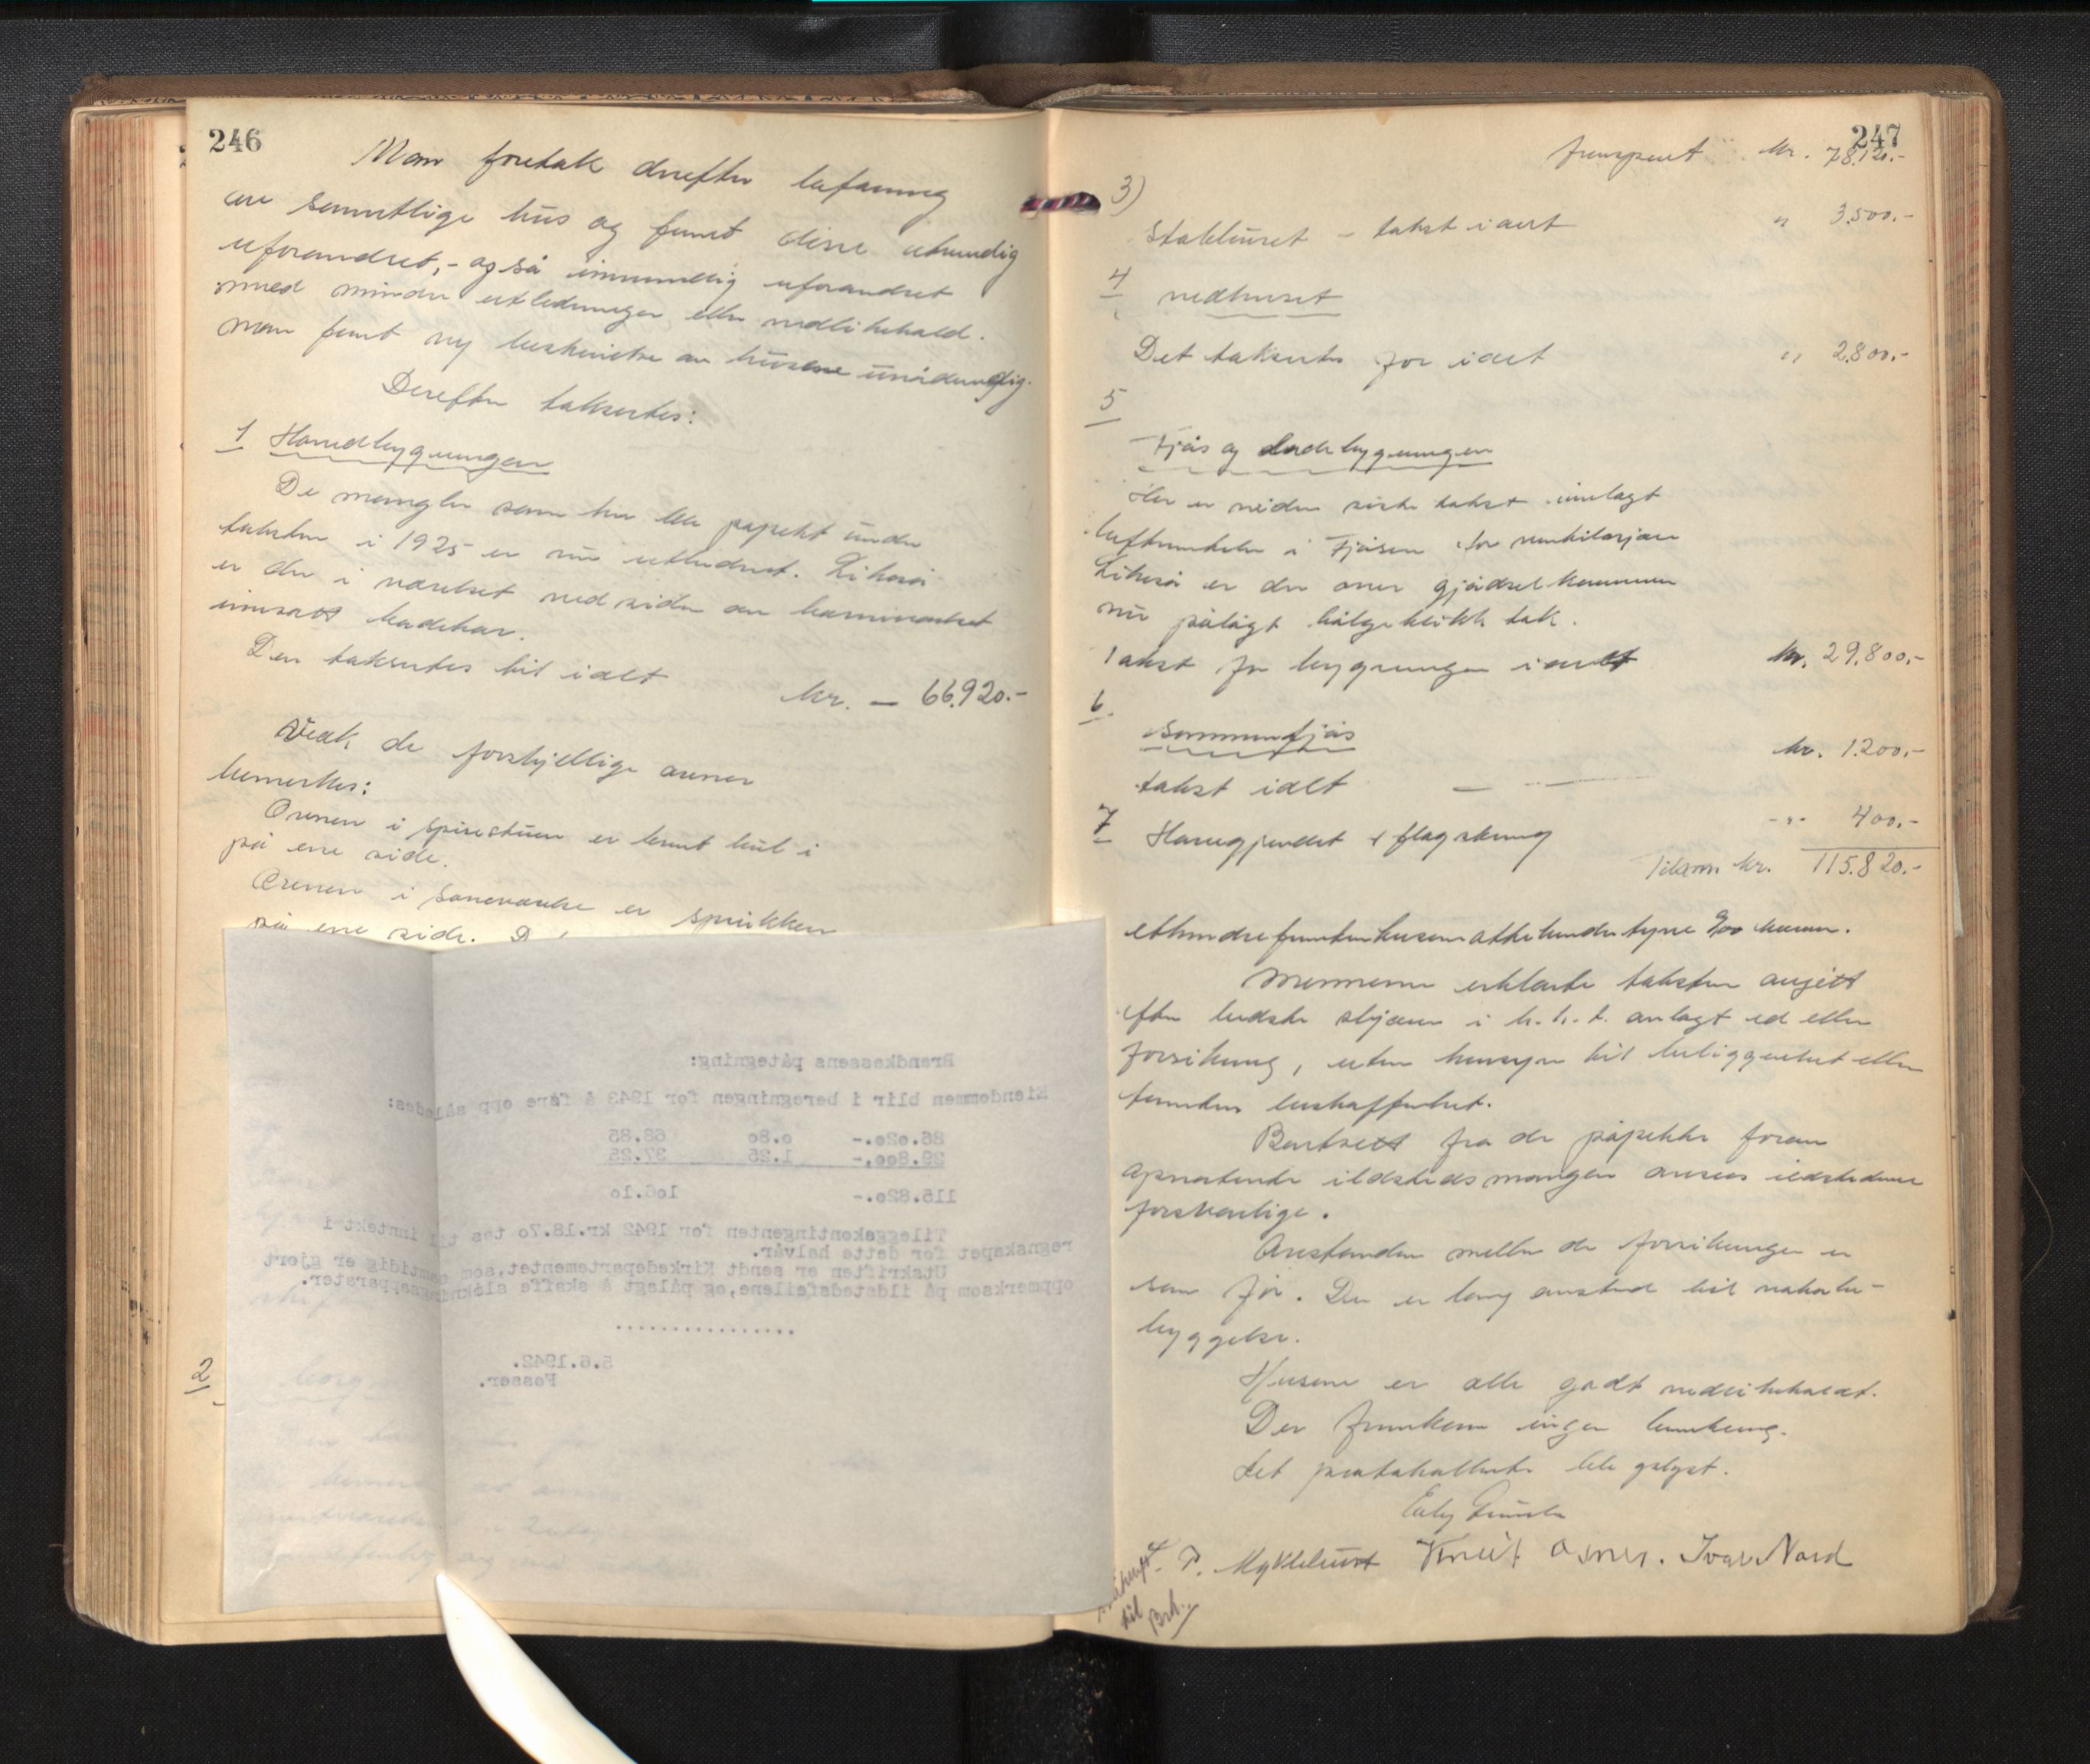 246
Man foretok derefter befaring
av samtlige hus og fant disse utvendig
uforandret, - også innvendig uforandret
med mindre utbedringer eller vedlikehold.
Man fant ny beskrivelse av husene unødvendig.
Derefter takseredes:
1 Hovedbygningen
De mangler som her ble påpekt under
taksten i 1925 er nu utbedret. Likeså
er der i værelset ved siden av
innsatt badekar.
Den takseredes til ialt kr. — 66.920.-
Vedk. de forskjellige ovner
bemerkes:
Ovnen i spisestuen er brent hul i
på ene side.
Ovnen i soveværelse er sprukken
på ene side.
2
Brandkassens påtegning:
Eiendommen blir i beregningen for 1943 å føre opp således:
86.020.- 0.80 68.85
29.800.- 1.25 37.25
115.820.- 106.10
Tilleggskontingenten for 1942 kr.18.70 tas til inntekt i
regnskapet for dette halvår.
Utskriften er sendt Kirkedepartementet, som samtidig er gjort
oppmerksom på ildstedsfeilene, og pålagt å skaffe slökningsapparater.
................
5.6.1942.
Fosser.
247
Transport kr. 78.120.-
3)
Stabburet - takst i alt " 3.500.-
4 vedhuset
Det takseres for ialt " 2.800.-
5
Fjøs og ladebygningen
Her er siden siste takst innlagt
i fjøsen for ventilasjon
Likeså er der over gjødselkummen
nu pålagt bølgeblikk tak.
Takst for bygningen i alt kr. 29.800.-
6.
Sommerfjøs
takst ialt — kr. 1.200.-
7 Havegjerdet + flagstang -"- 400.-
Tilsam. kr. 115.820.-
etthundrefemtentusenåttehundretyve 0/00 kroner.
Mennene erklærte taksten avgitt
efter bedste skjønn i h. h. t. avlagt ed eller
forsikring, uten hensyn til beliggenhet eller
tomtens beskaffenhet.
Bortsett fra de påpekte foran
ildstedsmangler ansees ildstedene
forsvarlige.
Avstanden mellem de forsikringer er
som før. Der er lang avstand til nabobe-
byggelse.
Husene er alle godt vedlikeholdt.
Der forekom ingen bemerkning.
Det protokollerte ble oplyst.
P. Myklebust Knut Ivar Nord
til